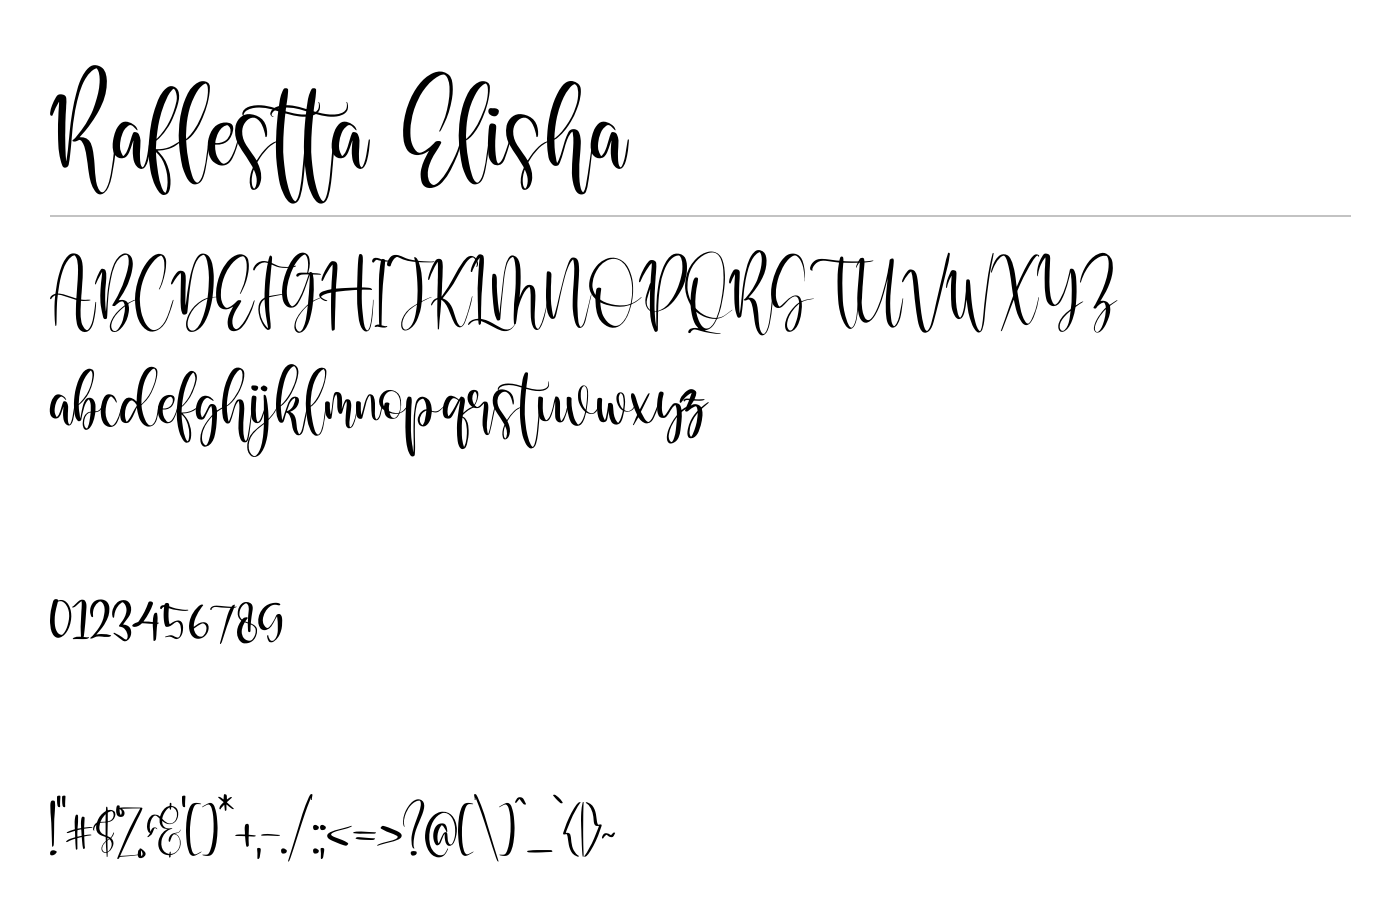 Raflestta Elisha
ABCDEFGHIJKLMNOPQRSTUVWXYZ
abcdefghijklmnopqrstuvwxyz
0123456789
!"#$%&'()*+,-./:;<=>?@[\]^_`{|}~